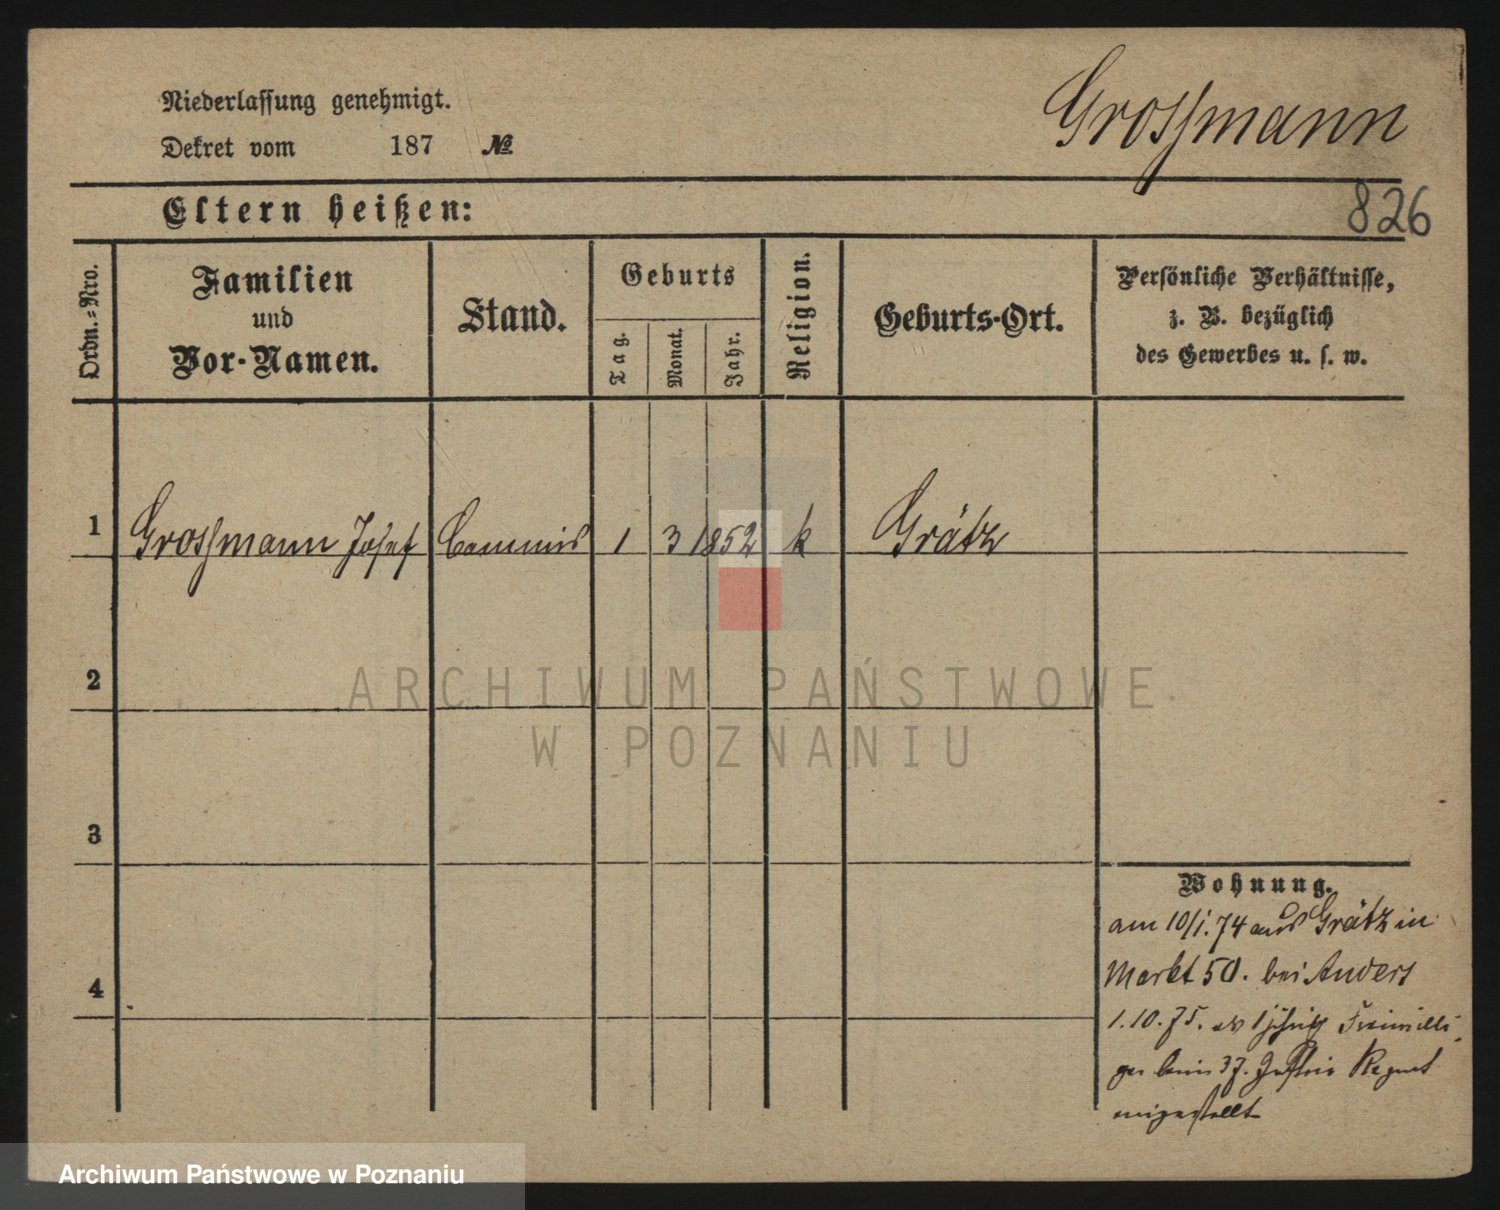 Niederlassung genehmigt.
Großmann
Dekret vom 187 №
Eltern heißen:
826
Ordn.=Nro.
Familien
und
Vor-Namen.
Stand.
Geburts
Tag.
Monat.
Jahr.
Religion.
Geburts-Ort.
Persönliche Verhältnisse,
z. B. bezüglich
des Gewerbes u. s. w.
1 Großmann Josef Commis 1 3 1852 k Grätz
2
3
4
Wohnung.
am 10/1. 74 aus Grätz in
Markt 50. bei Anders
1. 10. 75. als 1jährig Freiwilli-
ger beim 37. Inftrie Regmt
eingestellt
ARCHIWUM PAŃSTWOWE
W POZNANIU
Archiwum Państwowe w Poznaniu